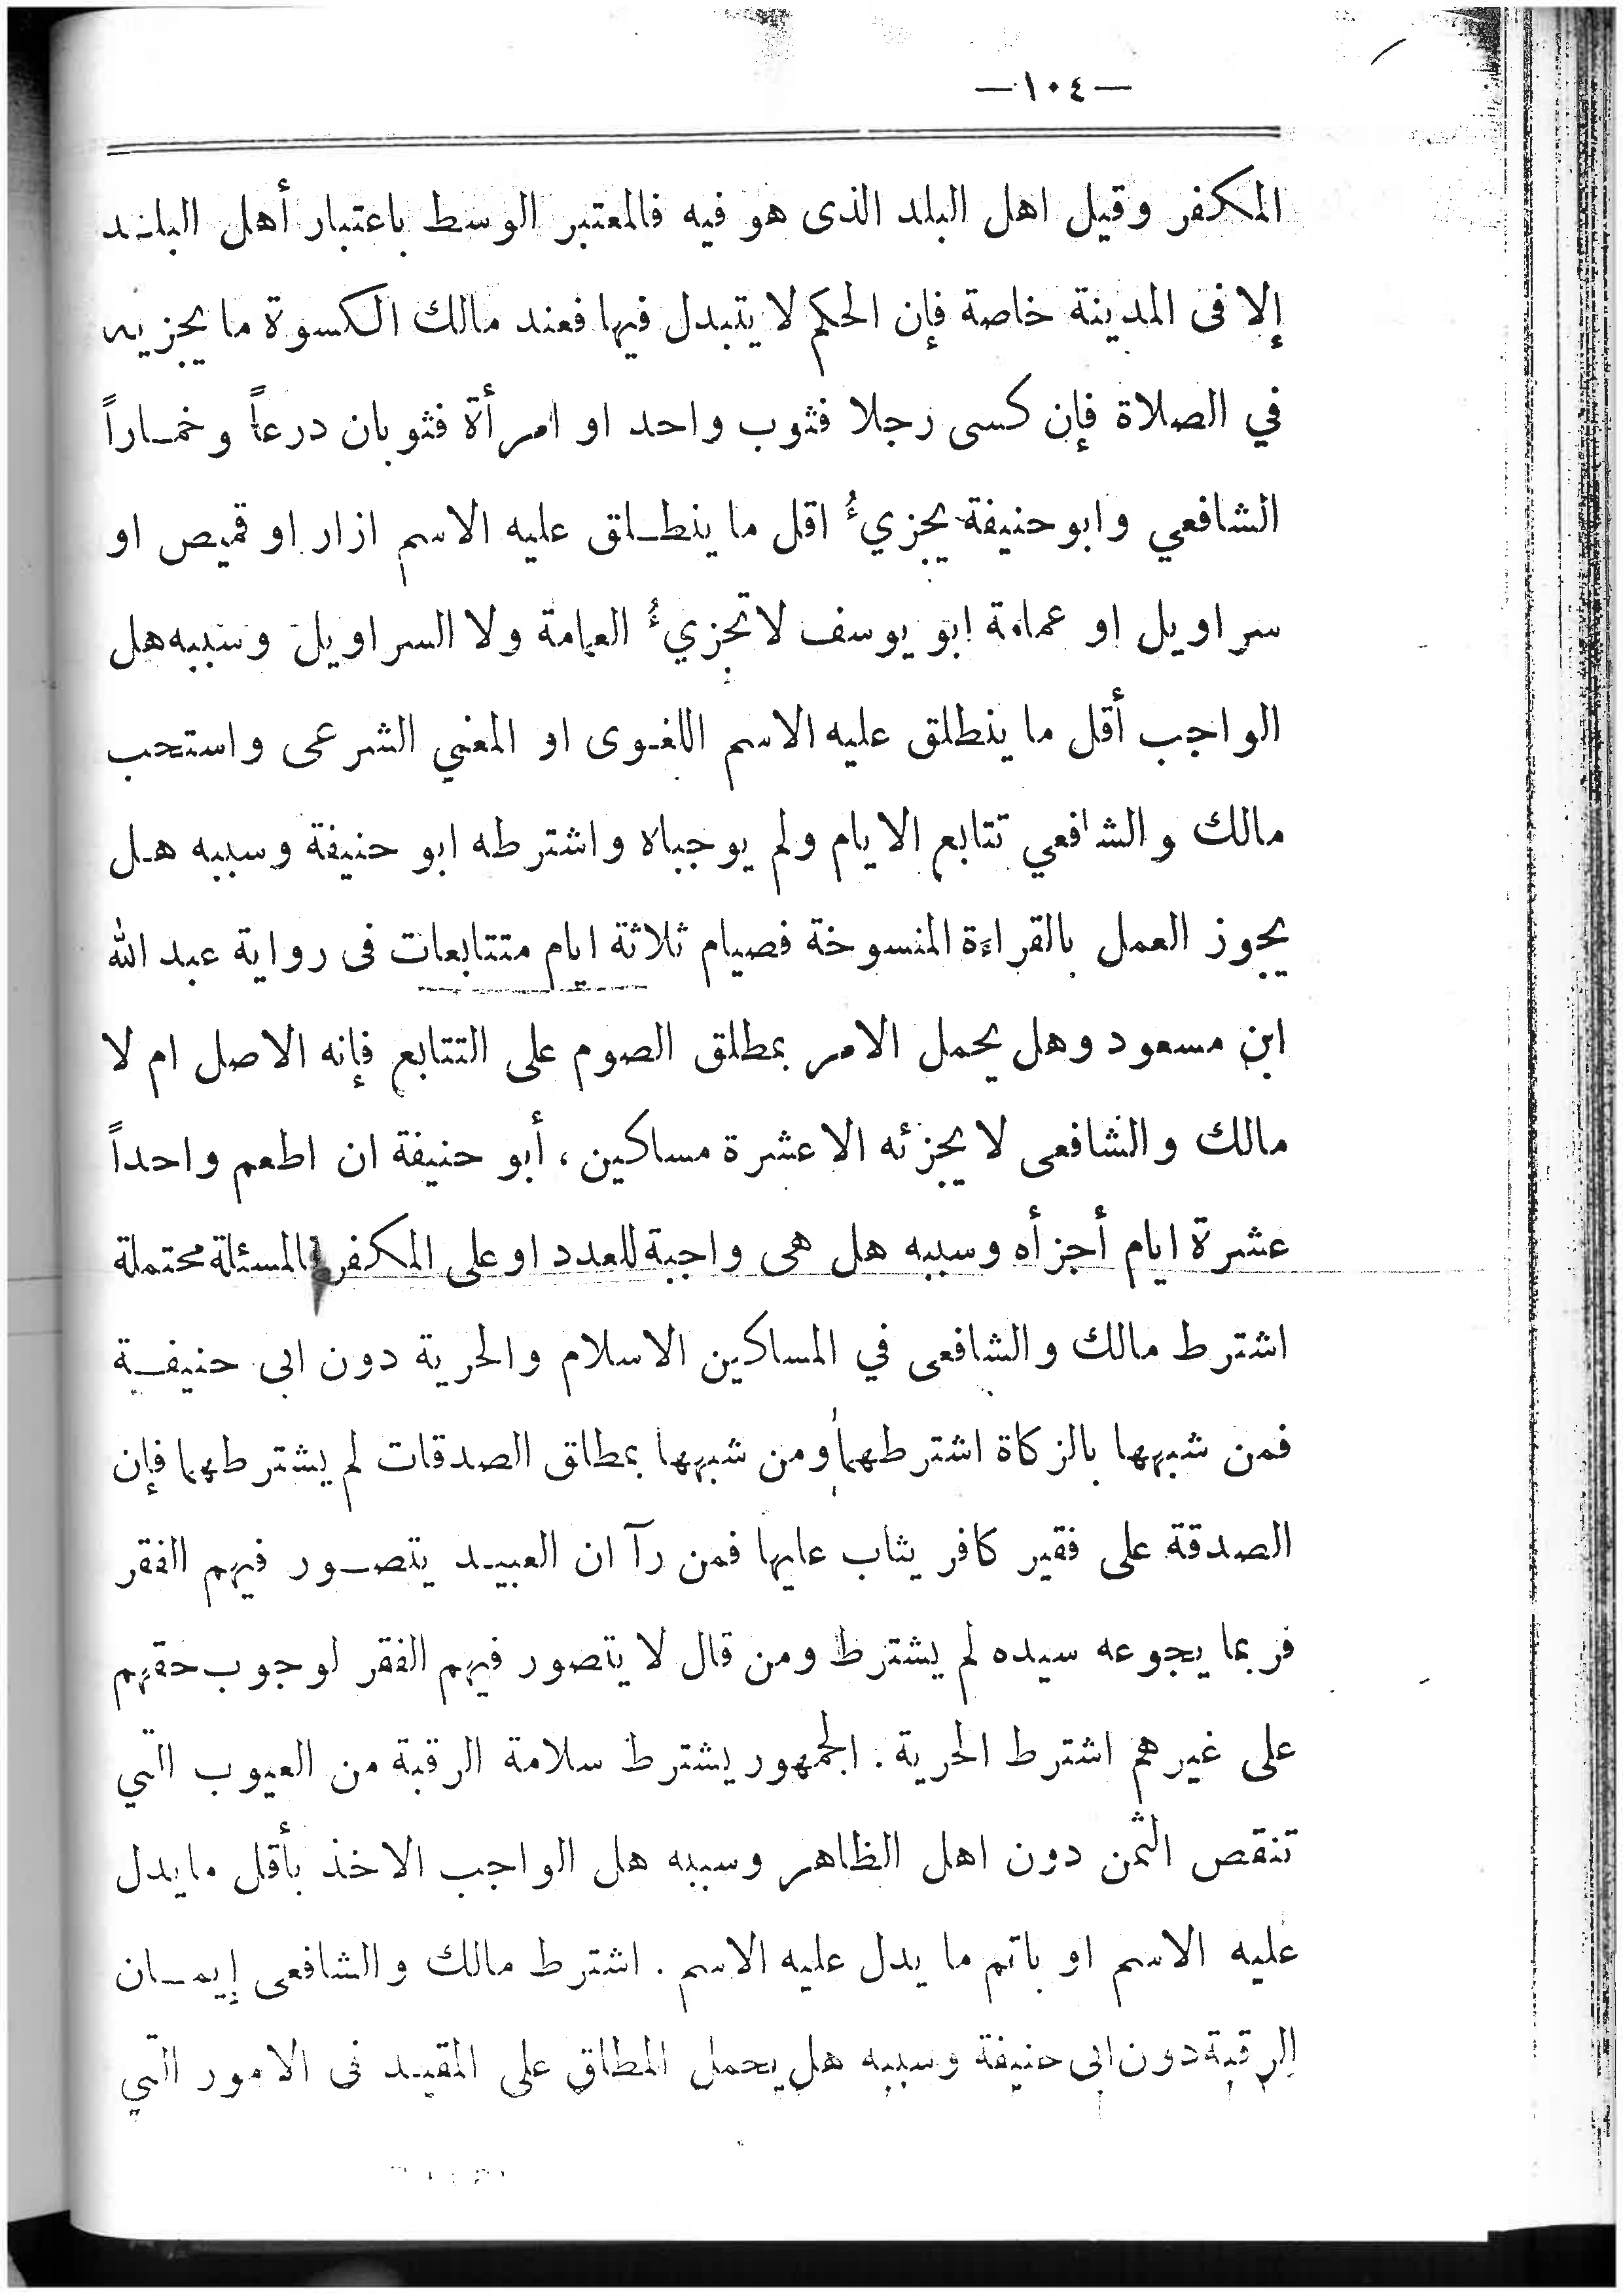 —١٠٤—
المكفر وقيل اهل البلد الذى هو فيه فالمعتبر الوسط باعتبار أهل البلد
إلا فى المدينة خاصة فإن الحكم لا يتبدل فيها فعند مالك الكسوة ما يجزيه
في الصلاة فإن كسى رجلا فثوب واحد او امرأة فثوبان درعاً وخماراً
الشافعي وابو حنيفة يجزيءُ اقل ما ينطلق عليه الاسم ازار او قميص او
سراويل او عمامة ابو يوسف لا تجزيءُ العمامة ولا السراويل وسببه هل
الواجب أقل ما ينطلق عليه الاسم اللغوى او المعني الشرعى واستحب
مالك والشافعي تتابع الايام ولم يوجباه واشترطه ابو حنيفة وسببه هل
يجوز العمل بالقراءة المنسوخة فصيام ثلاثة ايام متتابعات فى رواية عبد الله
ابن مسعود وهل يحمل الامر بمطلق الصوم على التتابع فإنه الاصل ام لا
مالك والشافعى لا يجزئه الا عشرة مساكين ، أبو حنيفة ان اطعم واحداً
عشرة ايام أجزأه وسببه هل هى واجبة للعدد او على المكفر فالمسئلة محتملة
اشترط مالك والشافعى في المساكين الاسلام والحرية دون ابى حنيفة
فمن شبهها بالزكاة اشترطهما ومن شبهها بمطلق الصدقات لم يشترطهما فإن
الصدقة على فقير كافر يثاب عليها فمن رآ ان العبيد يتصور فيهم الفقر
فربما يجوعه سيده لم يشترط ومن قال لا يتصور فيهم الفقر لوجوب حقهم
على غيرهم اشترط الحرية . الجمهور يشترط سلامة الرقبة من العيوب التي
تنقص الثمن دون اهل الظاهر وسببه هل الواجب الاخذ بأقل ما يدل
عليه الاسم او باتم ما يدل عليه الاسم . اشترط مالك والشافعى إيمان
الرقبة دون ابى حنيفة وسببه هل يحمل المطلق على المقيد فى الامور التي